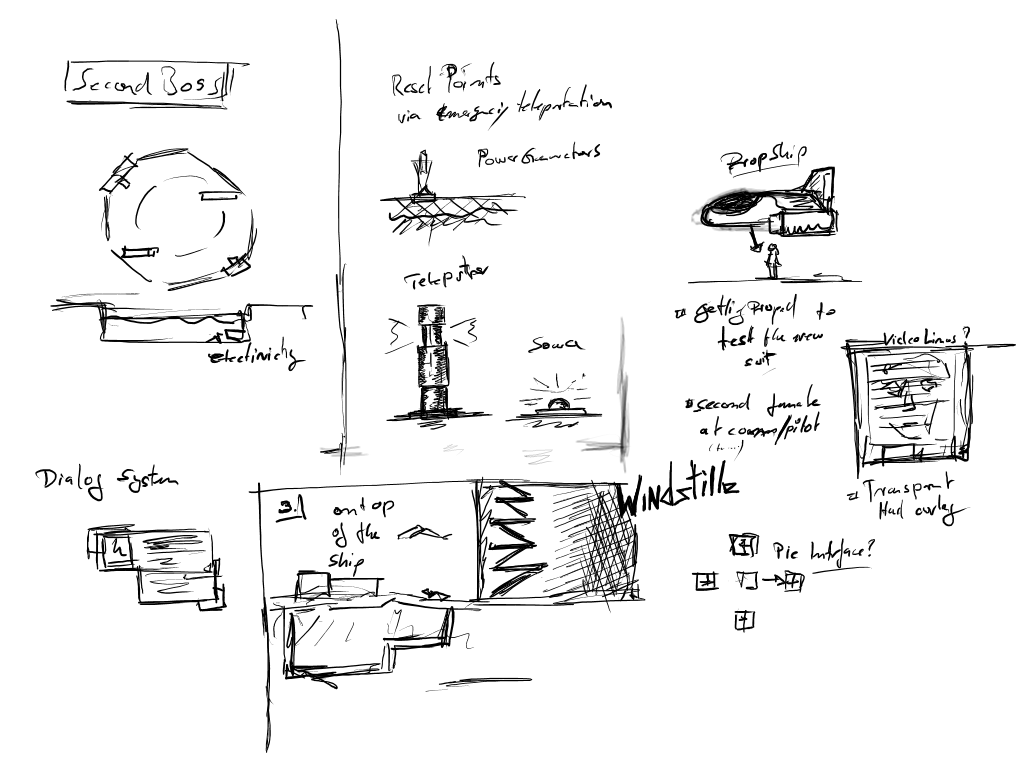 Second Boss
Reset Points
via emergency teleportation
Power Generators
Teleporter
electricity
Dropship
getting Droped to
test the new
suit
second female
at comms/pilot
Video Links?
Transparent
Hud overlay
Dialog System
3.1 on top
of the
ship
Windstille
Pie Interface?